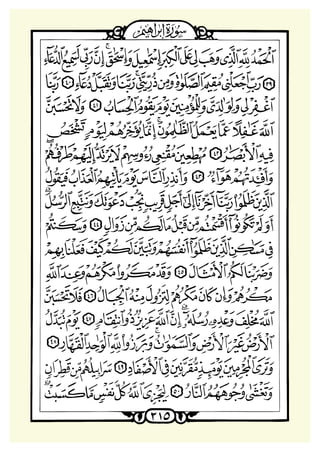 سُورَةُ إِبْرَاهِيم
ٱلْحَمْدُ لِلَّهِ ٱلَّذِى وَهَبَ لِى عَلَى ٱلْكِبَرِ إِسْمَٰعِيلَ وَإِسْحَٰقَ ۚ إِنَّ رَبِّى لَسَمِيعُ ٱلدُّعَآءِ
٣٩ رَبِّ ٱجْعَلْنِى مُقِيمَ ٱلصَّلَوٰةِ وَمِن ذُرِّيَّتِى ۚ رَبَّنَا وَتَقَبَّلْ دُعَآءِ ٤٠ رَبَّنَا
ٱغْفِرْ لِى وَلِوَٰلِدَىَّ وَلِلْمُؤْمِنِينَ يَوْمَ يَقُومُ ٱلْحِسَابُ ٤١ وَلَا تَحْسَبَنَّ
ٱللَّهَ غَٰفِلًا عَمَّا يَعْمَلُ ٱلظَّٰلِمُونَ ۚ إِنَّمَا يُؤَخِّرُهُمْ لِيَوْمٍ تَشْخَصُ
فِيهِ ٱلْأَبْصَٰرُ ٤٢ مُهْطِعِينَ مُقْنِعِى رُءُوسِهِمْ لَا يَرْتَدُّ إِلَيْهِمْ طَرْفُهُمْ ۖ
وَأَفْـِٔدَتُهُمْ هَوَآءٌ ٤٣ وَأَنذِرِ ٱلنَّاسَ يَوْمَ يَأْتِيهِمُ ٱلْعَذَابُ فَيَقُولُ
ٱلَّذِينَ ظَلَمُوا۟ رَبَّنَآ أَخِّرْنَآ إِلَىٰٓ أَجَلٍ قَرِيبٍ نُّجِبْ دَعْوَتَكَ وَنَتَّبِعِ ٱلرُّسُلَ ۗ
أَوَلَمْ تَكُونُوٓا۟ أَقْسَمْتُم مِّن قَبْلُ مَا لَكُم مِّن زَوَالٍ ٤٤ وَسَكَنتُمْ
فِى مَسَٰكِنِ ٱلَّذِينَ ظَلَمُوٓا۟ أَنفُسَهُمْ وَتَبَيَّنَ لَكُمْ كَيْفَ فَعَلْنَا بِهِمْ
وَضَرَبْنَا لَكُمُ ٱلْأَمْثَالَ ٤٥ وَقَدْ مَكَرُوا۟ مَكْرَهُمْ وَعِندَ ٱللَّهِ
مَكْرُهُمْ وَإِن كَانَ مَكْرُهُمْ لِتَزُولَ مِنْهُ ٱلْجِبَالُ ٤٦ فَلَا تَحْسَبَنَّ
ٱللَّهَ مُخْلِفَ وَعْدِهِۦ رُسُلَهُۥٓ ۗ إِنَّ ٱللَّهَ عَزِيزٌ ذُو ٱنتِقَامٍ ٤٧ يَوْمَ تُبَدَّلُ
ٱلْأَرْضُ غَيْرَ ٱلْأَرْضِ وَٱلسَّمَٰوَٰتُ ۖ وَبَرَزُوا۟ لِلَّهِ ٱلْوَٰحِدِ ٱلْقَهَّارِ ٤٨
وَتَرَى ٱلْمُجْرِمِينَ يَوْمَئِذٍ مُّقَرَّنِينَ فِى ٱلْأَصْفَادِ ٤٩ سَرَابِيلُهُم مِّن قَطِرَانٍ
وَتَغْشَىٰ وُجُوهَهُمُ ٱلنَّارُ ٥٠ لِيَجْزِىَ ٱللَّهُ كُلَّ نَفْسٍ مَّا كَسَبَتْ ۚ
٣١٥